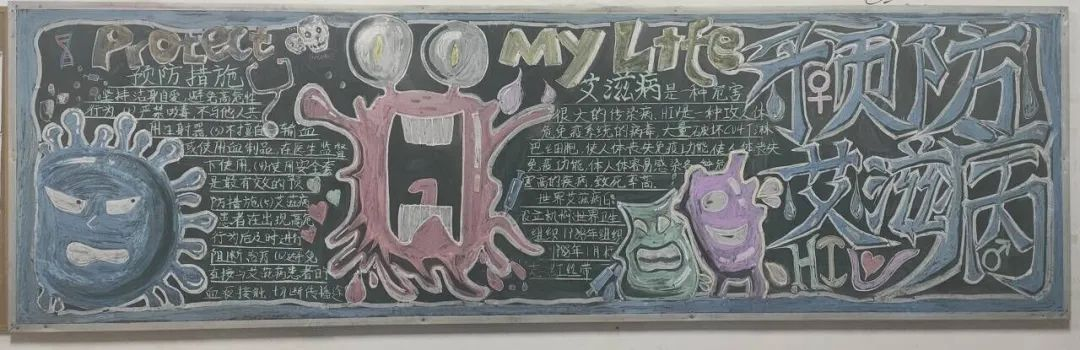 Protect My Life
预防措施
坚持洁身自爱,避免高危性
行为(2)严禁吸毒,不与他人共
用注射器(3)不擅自输血
或使用血制品,在医生监督
下使用,(4)使用安全套
是最有效的预
防措施,(5)艾滋病
患者在出现高危
行为后及时进行
阻断治疗(6)避免
直接与艾滋病患者的
血液接触,切断传播途
艾滋病是一种危害
很大的传染病,HIV是一种攻人体
免疫系统的病毒,大量破坏CD4T淋
巴细胞,使人体丧失免疫功能,使人体丧失
免疫功能,体人体容易感染各种危
害高的疾病,致死率高.
世界艾滋病日
设立机构:世界卫生
组织 1988年组织
1988年1月
红丝带
预防
艾滋病
HIV